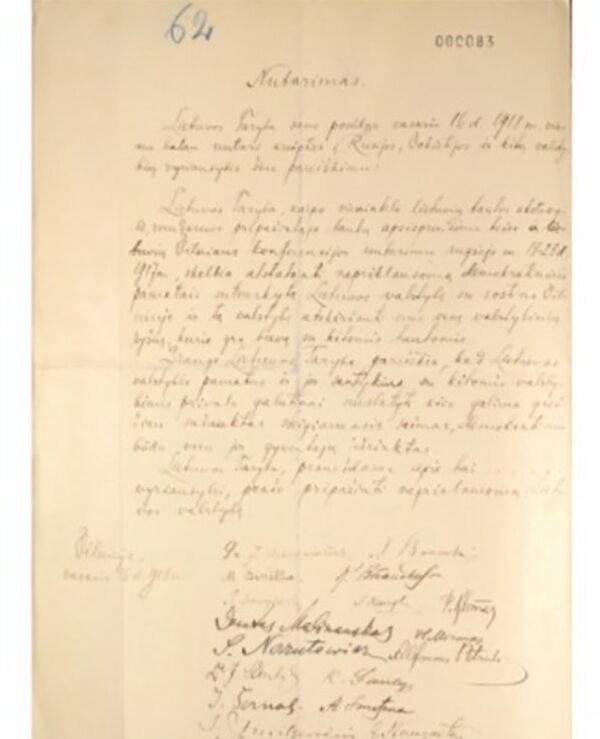 62
000083
Nutarimas.
Lietuvos Taryba savo posėdyje vasario 16 d. 1918 m. vie-
nu balsu nutarė kreiptis į Rusijos, Vokietijos ir kitų valsty-
bių vyriausybes šiuo pareiškimu:
Lietuvos Taryba, kaipo vienintelė lietuvių tautos atstovy-
bė, remdamos pripažintąja tautų apsisprendimo teise ir lie-
tuvių Vilniaus konferencijos nutarimu rugsėjo m. 18-23 d.
1917 m., skelbia atstatanti nepriklausomą demokratiniais
pamatais sutvarkytą Lietuvos valstybę su sostine Vil-
niuje ir tą valstybę atskirianti nuo visų valstybinių
ryšių, kurie yra buvę su kitomis tautomis.
Drauge Lietuvos Taryba pareiškia, kad Lietuvos
valstybės pamatus ir jos santykius su kitomis valsty-
bėmis privalo galutinai nustatyti kiek galima grei-
čiau sušauktas steigiamasis seimas, demokratiniu
būdu visų jos gyventojų išrinktas.
Lietuvos Taryba, pranešdama apie tai
vyriausybei, prašo pripažinti nepriklausomą Lietu-
vos valstybę.
Vilniuje,
vasario 16 d. 1918 m.
Dr J.
M. Biržiška
Donatas Malinauskas
S. Narutowicz Alfonsas Petrulis
Dr J. Šaulys
J. Vernas A. Smetona